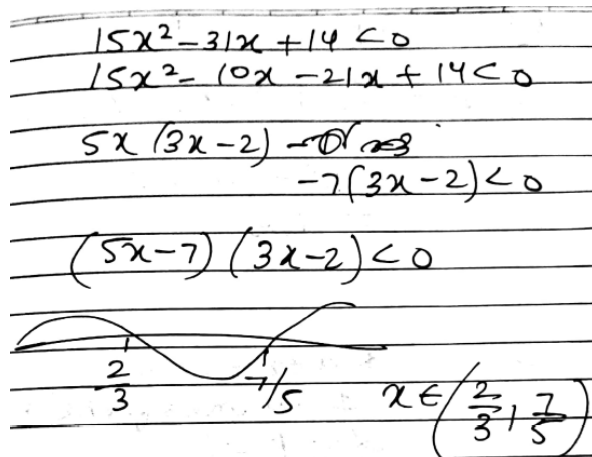 15x² - 31x + 14 < 0
15x² - 10x - 21x + 14 < 0
5x (3x - 2)
-7(3x - 2) < 0
(5x - 7) (3x - 2) < 0
2/3 7/5 x ∈ (2/3, 7/5)